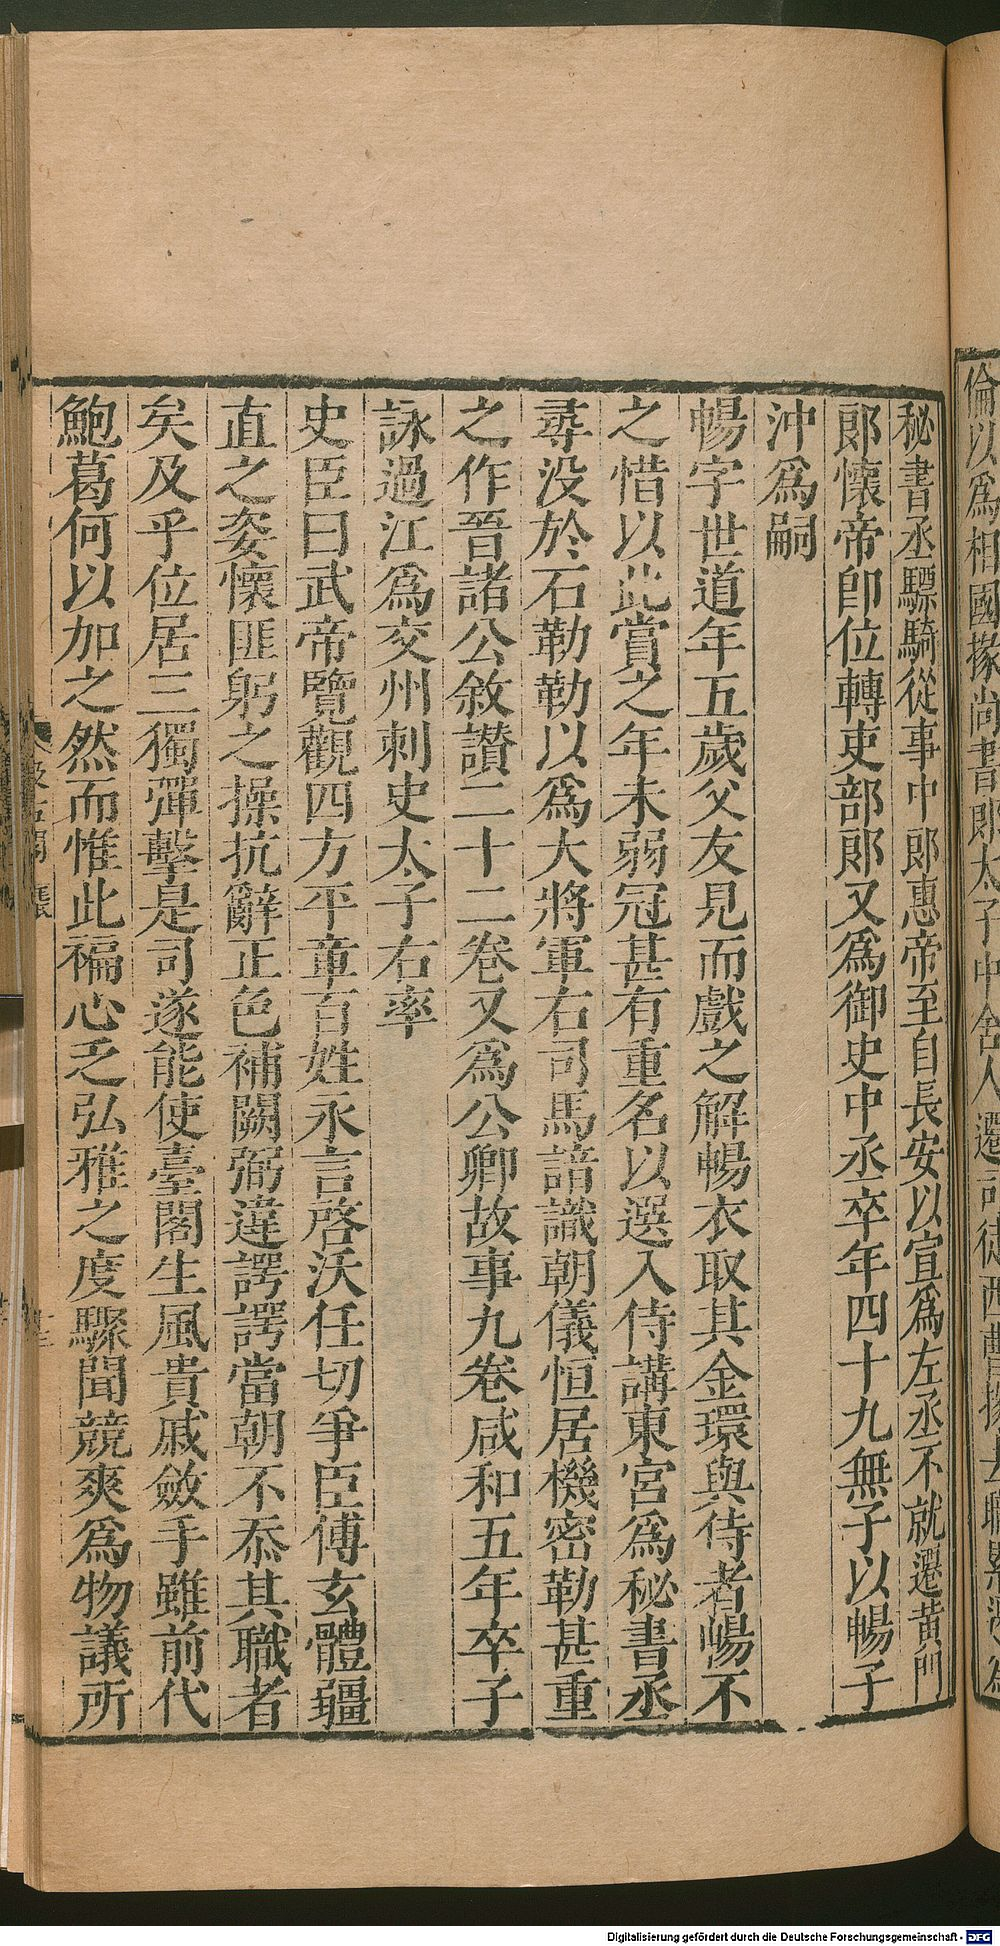 倫以爲相國掾尚書郎太子中舍人遷司徒西曹掾去職累遷爲
秘書丞驃騎從事中郎惠帝至自長安以宣爲左丞不就遷黃門
郎懷帝卽位轉吏部郎又爲御史中丞卒年四十九無子以暢子
沖爲嗣
暢字世道年五歲父友見而戲之解暢衣取其金環與侍者暢不
之惜以此賞之年未弱冠甚有重名以選入侍講東宮爲秘書丞
尋没於石勒勒以爲大將軍右司馬諳識朝儀恒居機密勒甚重
之作晉諸公敘讃二十二卷又爲公卿故事九卷咸和五年卒子
詠過江爲交州刺史太子右率
史臣曰武帝覽觀四方平章百姓永言啓沃任切爭臣傅玄體彊
直之姿懷匪躬之操抗辭正色補闕弼違諤諤當朝不忝其職者
矣及乎位居三獨彈擊是司遂能使臺閣生風貴戚斂手雖前代
鮑葛何以加之然而惟此褊心乏弘雅之度驟聞競爽爲物議所
Digitalisierung gefördert durch die Deutsche Forschungsgemeinschaft - DFG